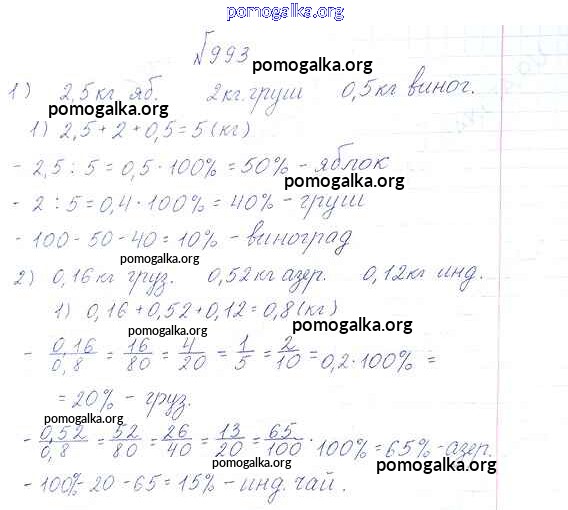 pomogalka.org
№993
pomogalka.org
1) 2,5 кг яб. 2 кг. груш 0,5 кг виног.
pomogalka.org
1) 2,5 + 2 + 0,5 = 5 (кг)
- 2,5 : 5 = 0,5 · 100% = 50% - яблок
pomogalka.org
- 2 : 5 = 0,4 · 100% = 40% - груш
- 100 - 50 - 40 = 10% - виноград
pomogalka.org
2) 0,16 кг груз. 0,52 кг азер. 0,12 кг инд.
1) 0,16 + 0,52 + 0,12 = 0,8 (кг)
pomogalka.org
pomogalka.org
- 0,16/0,8 = 16/80 = 4/20 = 1/5 = 2/10 = 0,2 · 100% =
= 20% - груз.
pomogalka.org
- 0,52/0,8 = 52/80 = 26/40 = 13/20 = 65/100 · 100% = 65% - азер.
pomogalka.org
pomogalka.org
- 100% - 20 - 65 = 15% - инд. чай.